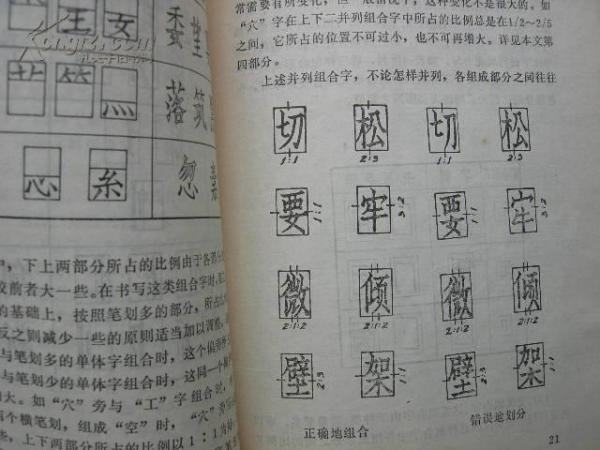 王 女
娄
艹 竹 灬
落 筑
心 糸
忽
中，下上两部分所占的比例由于各
较前者大一些。在书写这类组合字时，
的基础上，按照笔划多的部分，所占
反之则减少一些的原则适当加以调整，
与笔划多的单体字组合时，这个偏
与笔划少的单体字组合时，这同一个
大。如“穴”旁与“工”字组合时，
个横笔划，组成“空”时，“穴”
些，上下两部分所占的比例以1：1为
常需要有所变化，但一般情况下，这种变化不是很大的。如
“穴”字在上下二并列组合字中所占的比例总是在1/2～2/5
之间，它所占的位置不可过小，也不可再增大。详见本文第
四部分。
上述并列组合字，不论怎样并列，各组成部分之间往往
切 松 切 松
1:1 2:3 1:1 2:3
要 牢 要 牢
1:1 3:2 1:1 3:2
微 倾 微 倾
2:1:2 1:1:2 2:1:2 1:1:2
壁 架 壁 架
2:3 1:1 2:3 1:1
正确地组合 错误地划分
21